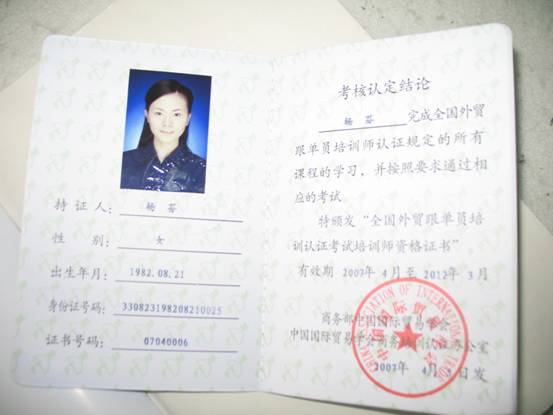 持证人：杨芬
性别：女
出生年月：1982.08.21
身份证号码：330823198208210025
证书号码：07040006
考核认定结论
杨芬 完成全国外贸
跟单员培训师认证规定的所有
课程的学习，并按照要求通过相
应的考试。
特颁发“全国外贸跟单员培
训认证考试培训师资格证书”
有效期 2007年 4月至 2012年 3月
商务部中国国际贸易学会
中国国际贸易学会商务培训认证办公室
2007年 4月 日发